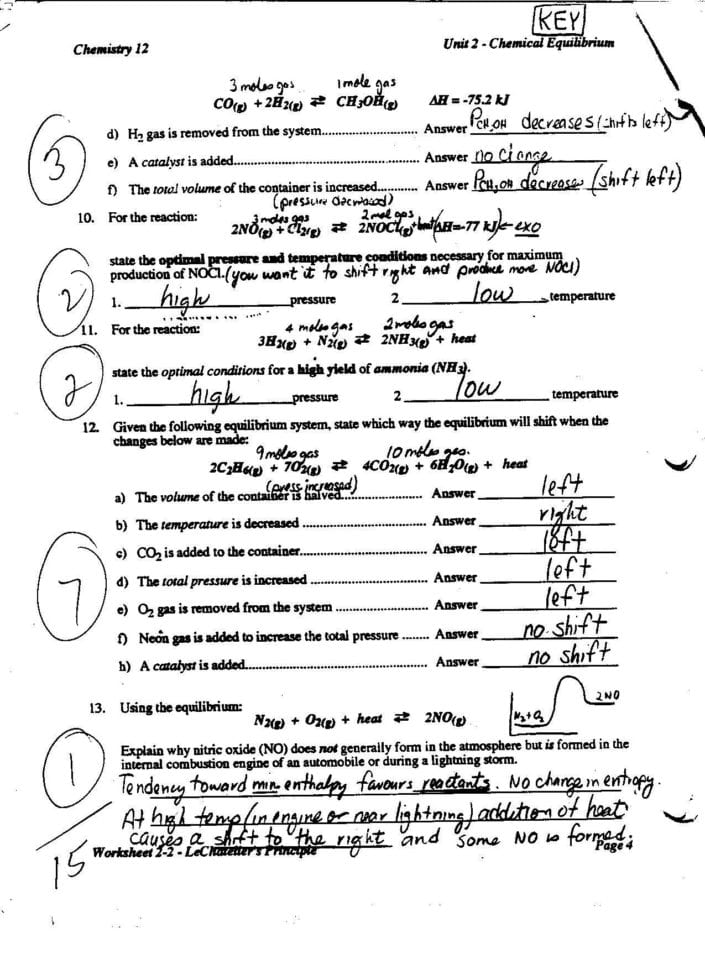 KEY
Chemistry 12 Unit 2 - Chemical Equilibrium
3 moles gas 1 mole gas
CO(g) + 2H2(g) ⇄ CH3OH(g) ΔH = -75.2 kJ
d) H2 gas is removed from the system............................ Answer PCH3OH decreases (shifts left)
e) A catalyst is added...................................................... Answer no change
3
f) The total volume of the container is increased............ Answer PCH3OH decreases (shift left)
(pressure decreased)
10. For the reaction: 3 moles gas 2 mol gas
2NO(g) + Cl2(g) ⇄ 2NOCl(g) + heat (ΔH = -77 kJ) ← exo
state the optimal pressure and temperature conditions necessary for maximum
production of NOCl. (you want it to shift right and produce more NOCl)
2
1. high pressure 2 low temperature
11. For the reaction: 4 moles gas 2 moles gas
3H2(g) + N2(g) ⇄ 2NH3(g) + heat
state the optimal conditions for a high yield of ammonia (NH3).
2
1. high pressure 2 low temperature
12. Given the following equilibrium system, state which way the equilibrium will shift when the
changes below are made:
9 moles gas 10 moles gas.
2C2H6(g) + 7O2(g) ⇄ 4CO2(g) + 6H2O(g) + heat
(press increased)
a) The volume of the container is halved........................ Answer left
b) The temperature is decreased .................................... Answer right
c) CO2 is added to the container..................................... Answer left
d) The total pressure is increased .................................. Answer left
7
e) O2 gas is removed from the system ........................... Answer left
f) Neon gas is added to increase the total pressure ........ Answer no shift
h) A catalyst is added...................................................... Answer no shift
13. Using the equilibrium:
N2(g) + O2(g) + heat ⇄ 2NO(g)
N2+O2 2NO
Explain why nitric oxide (NO) does not generally form in the atmosphere but is formed in the
internal combustion engine of an automobile or during a lightning storm.
1
Tendency toward min enthalpy favours reactants. No change in entropy.
At high temp (in engine or near lightning) addition of heat
causes a shift to the right and some NO is formed.
15
Worksheet 2-2 - LeChatelier's Principle Page 4